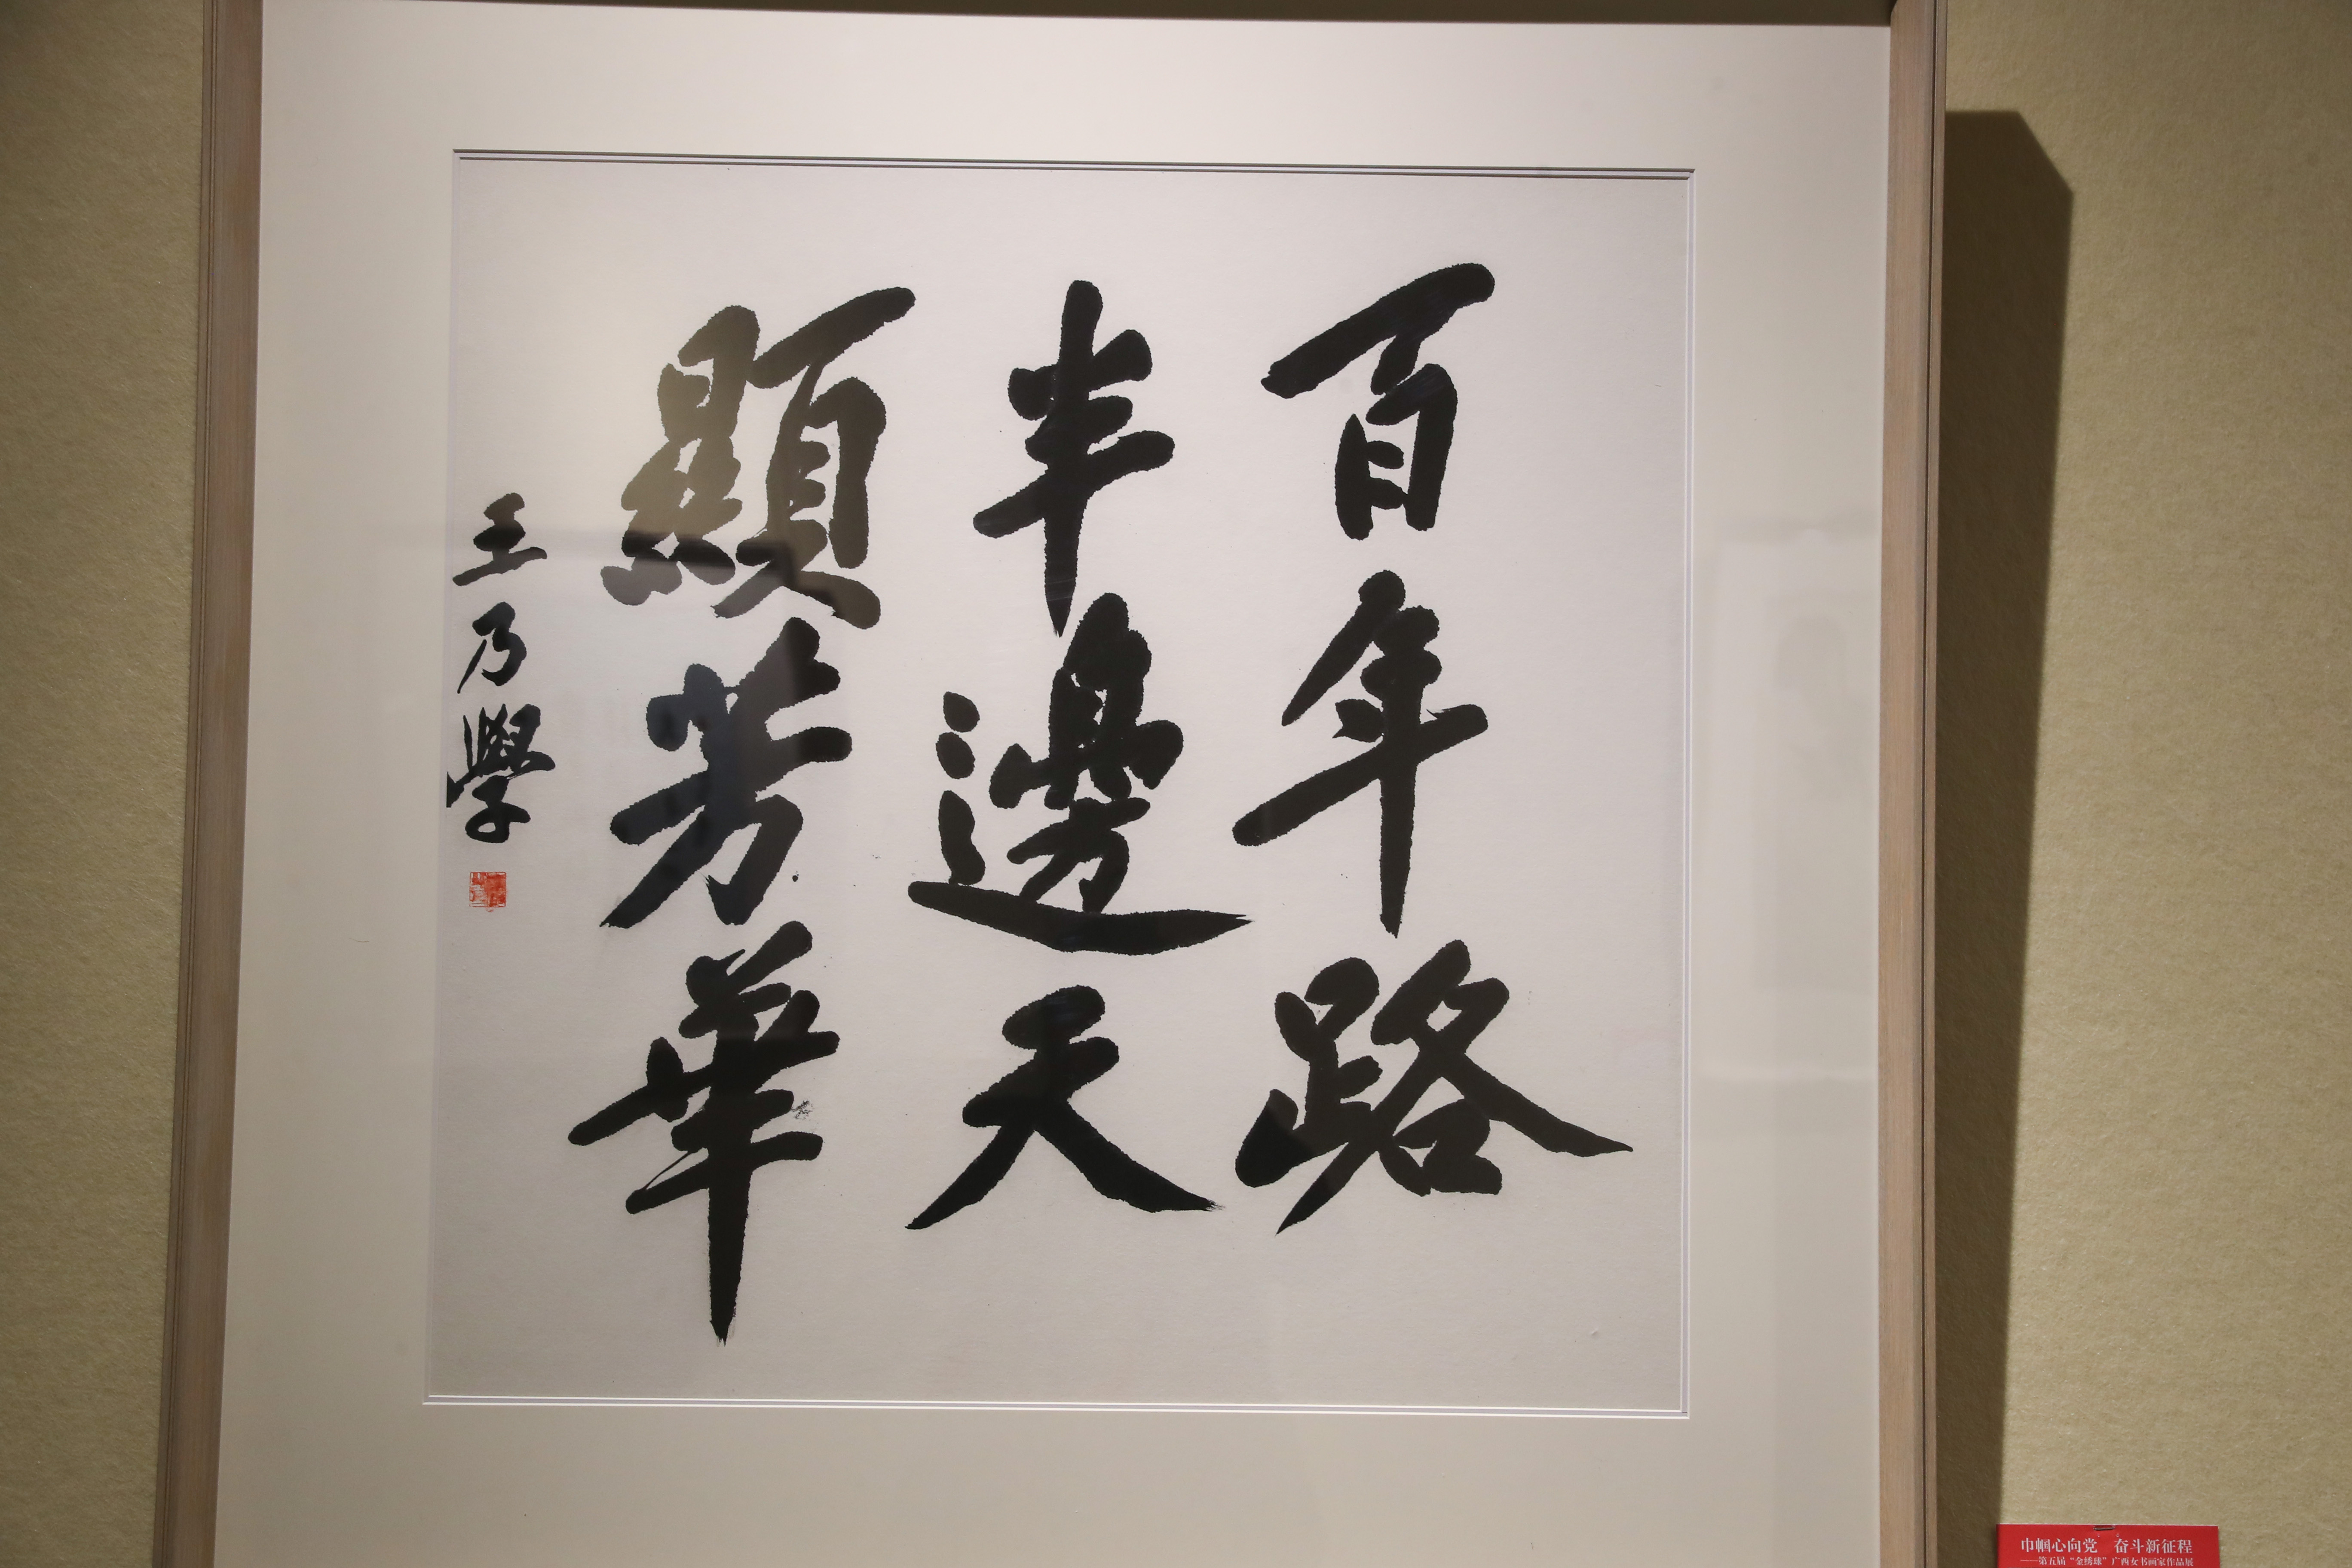 百年路
半邊天
顯芳華
王乃學
巾帼心向党 奋斗新征程
——第五届“金绣球”广西女书画家作品展